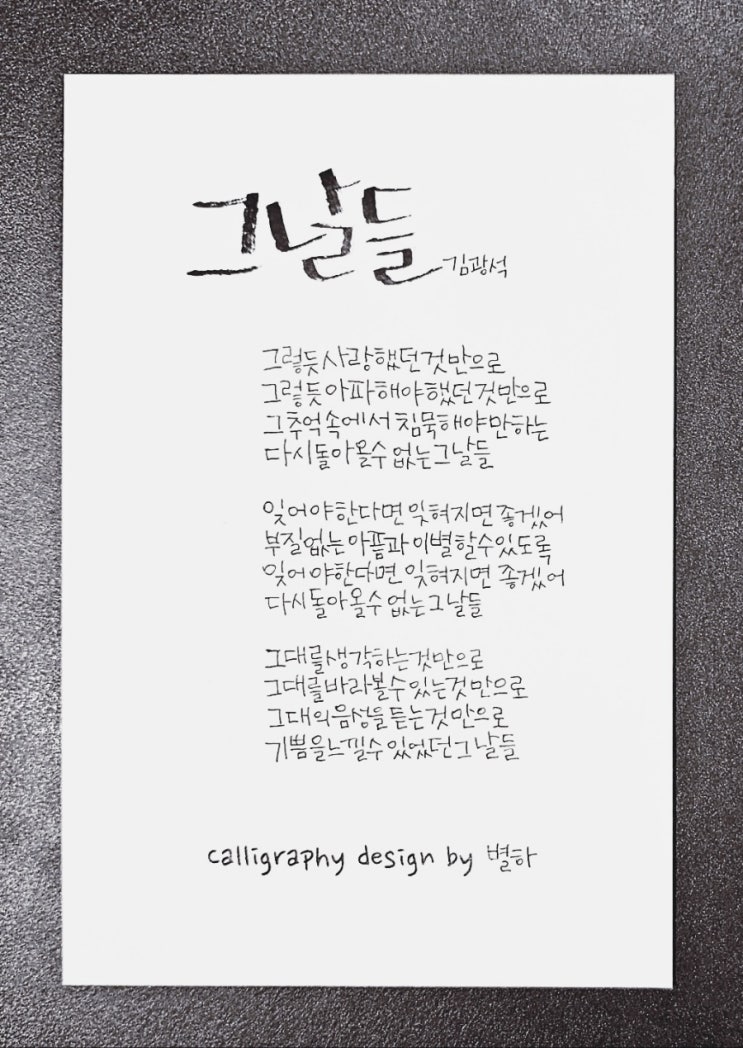 그날들
김광석
그렇듯 사랑했던 것만으로
그렇듯 아파해야 했던 것만으로
그 추억 속에서 침묵해야만 하는
다시 돌아올 수 없는 그날들
잊어야 한다면 잊혀지면 좋겠어
부질없는 아픔과 이별할 수 있도록
잊어야 한다면 잊혀지면 좋겠어
다시 돌아올 수 없는 그날들
그대를 생각하는 것만으로
그대를 바라볼 수 있는 것만으로
그대의 음성을 듣는 것만으로
기쁨을 느낄 수 있었던 그날들
calligraphy design by 별하